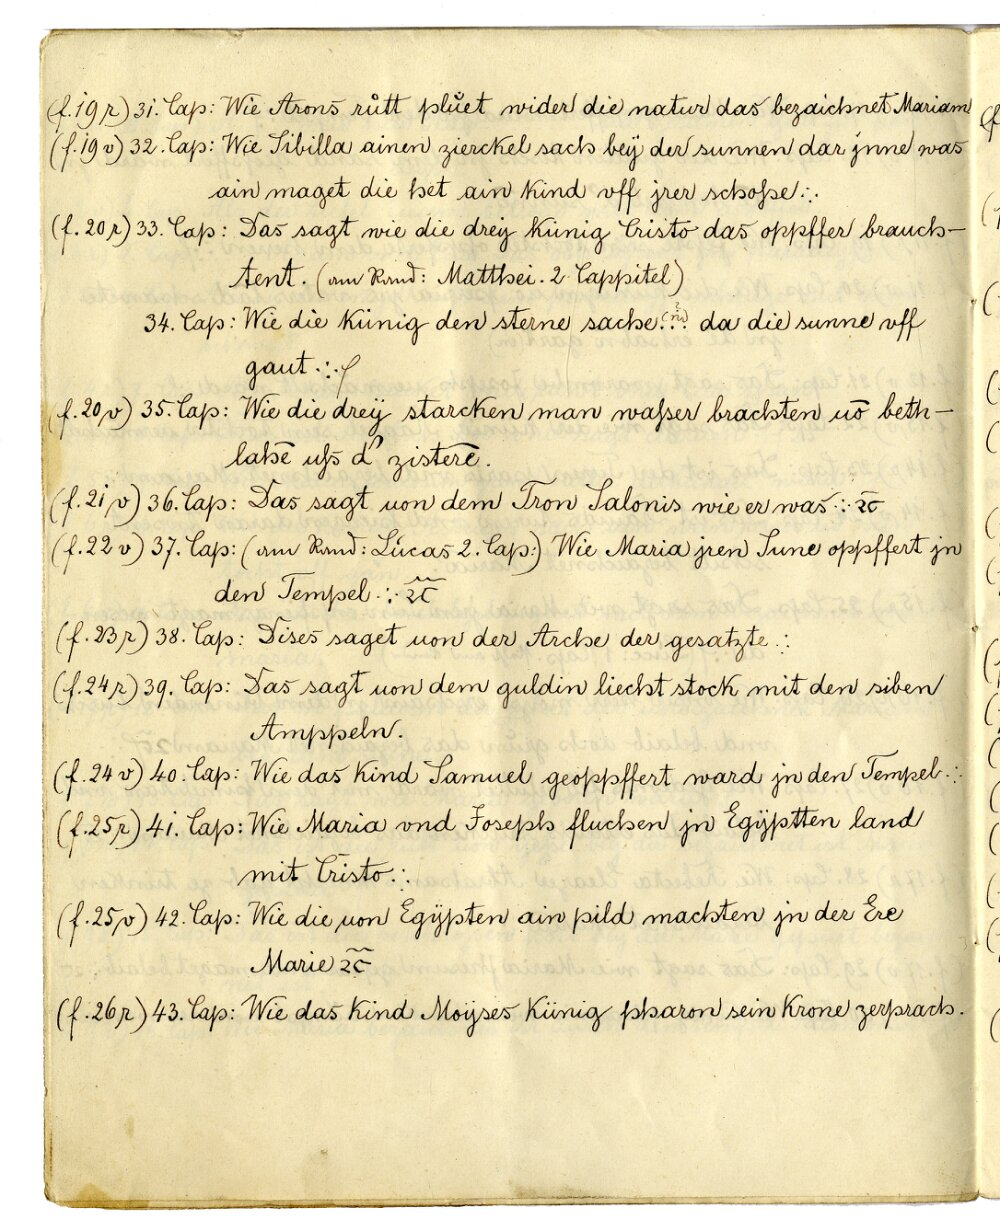 (f. 19 r) 31. Cap: Wie Arons růtt plůet wider die natur das bezaichnet Mariam
(f. 19 v) 32. Cap: Wie Sibilla ainen zierckel sach beÿ der sunnen dar jnne was
ain maget die het ain Kind vff jrer schoße :.
(f. 20 r) 33. Cap: Das sagt wie die dreÿ Künig Cristo das oppffer brauch-
tent. (am Rand: Matthei. 2 Cappitel)
34. Cap: Wie die Künig den sterne sache... da die sunne vff
gaut :.
(f. 20 v) 35. Cap: Wie die dreÿ starcken man waßer brachten uō beth-
lahē uſs d' zisterē.
(f. 21 v) 36. Cap: Das sagt uon dem Tron Salonis wie er was :. ꝛc
(f. 22 v) 37. Cap: (am Rand: Lucas 2. Cap:) Wie Maria jren Sune oppffert jn
den Tempel :. ꝛc
(f. 23 r) 38. Cap: Dises saget uon der Arche der gesatzte :.
(f. 24 r) 39. Cap: Das sagt uon dem guldin liecht stock mit den siben
Amppeln.
(f. 24 v) 40. Cap: Wie das Kind Samuel geoppffert ward jn den Tempel :.
(f. 25 r) 41. Cap: Wie Maria vnd Joseph fluchen jn Egÿptten land
mit Cristo :.
(f. 25 v) 42. Cap: Wie die uon Egÿpten ain pild machten jn der Ere
Marie ꝛc
(f. 26 r) 43. Cap: Wie das Kind Moÿses Künig pharon sein Krone zerprach.